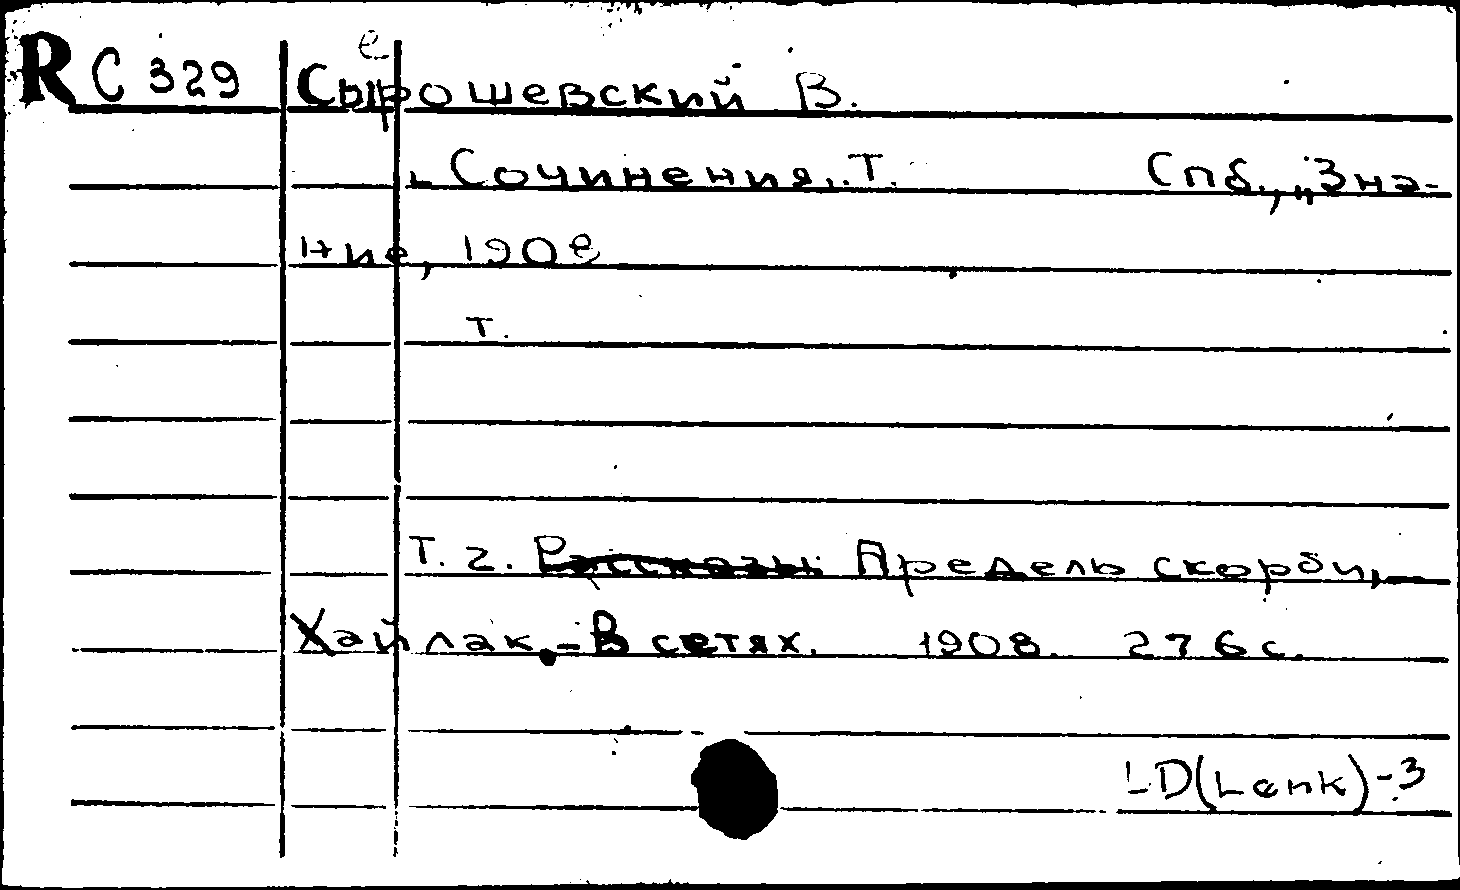 R С 329 Сырошевский В.
е
Сочинения. Т. Спб., „Зна-
ние, 190
т.
Т. 2. Рассказы Пределъ скорби, —
Хайлак. - В сетях. 1908. 276 с.
LD(Lenk)-3